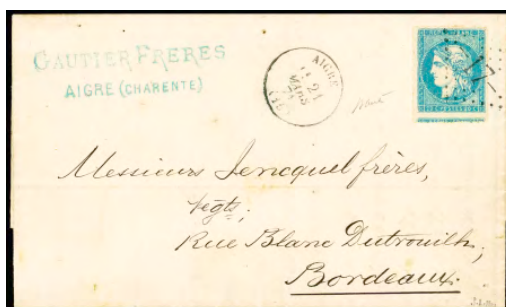 GAUTIER FRERES
AIGRE (CHARENTE)
AIGRE
21
MARS
Messieurs Jencquel frères,
Negts;
Rue Blanc Dutrouilh;
Bordeaux.